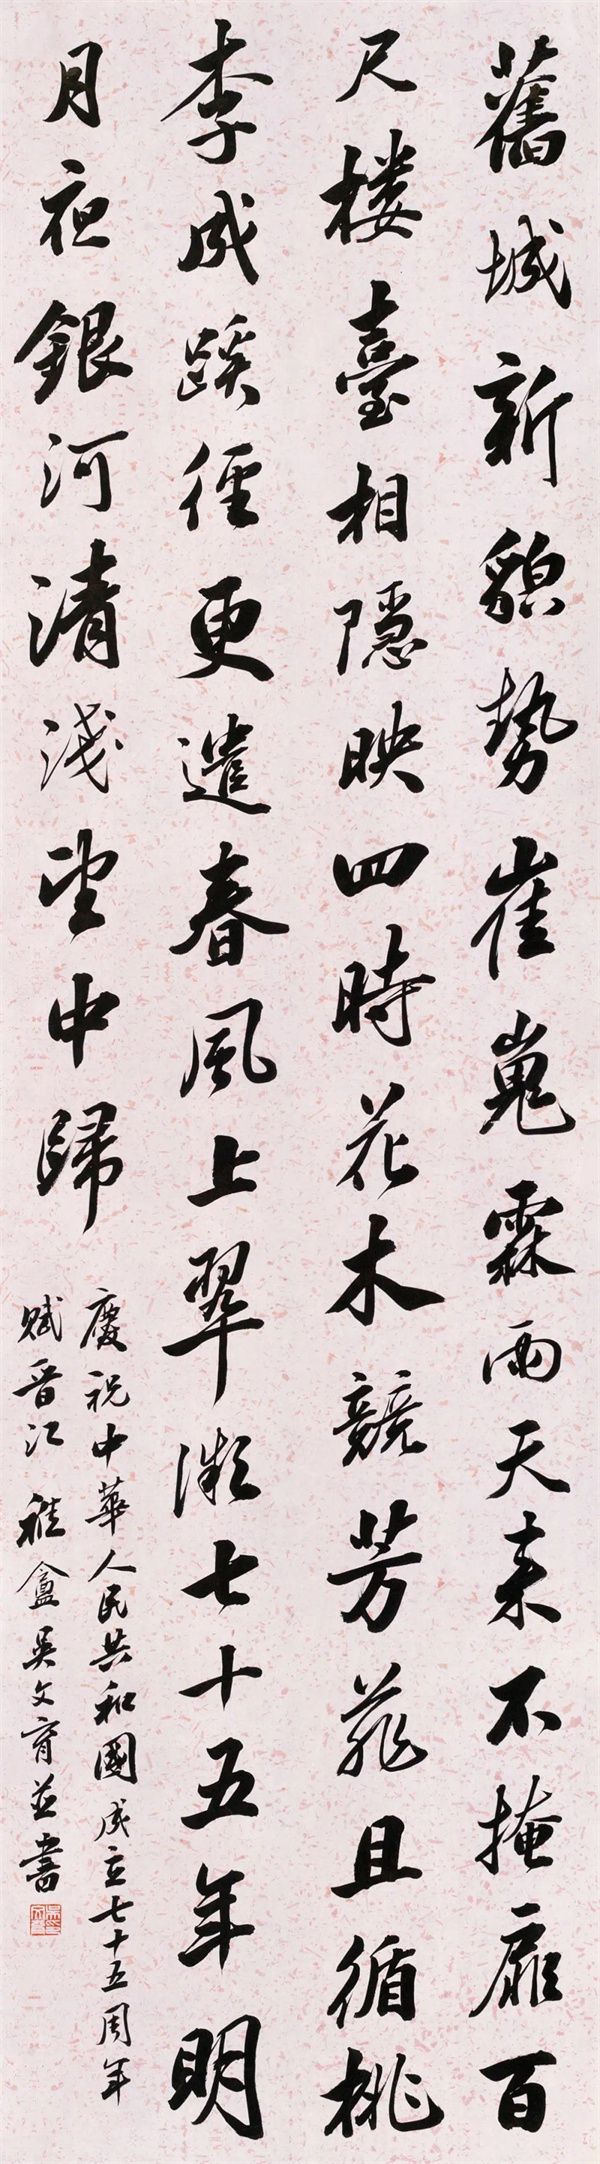 舊城新貌勢崔嵬霖雨天来不掩扉百
尺楼臺相隱映四時花木競芳菲且循桃
李成蹊徑更遣春風上翠微七十五年明
月夜銀河清淺望中歸
慶祝中華人民共和國成立七十五周年
賦晋江稚盦吳文育並書